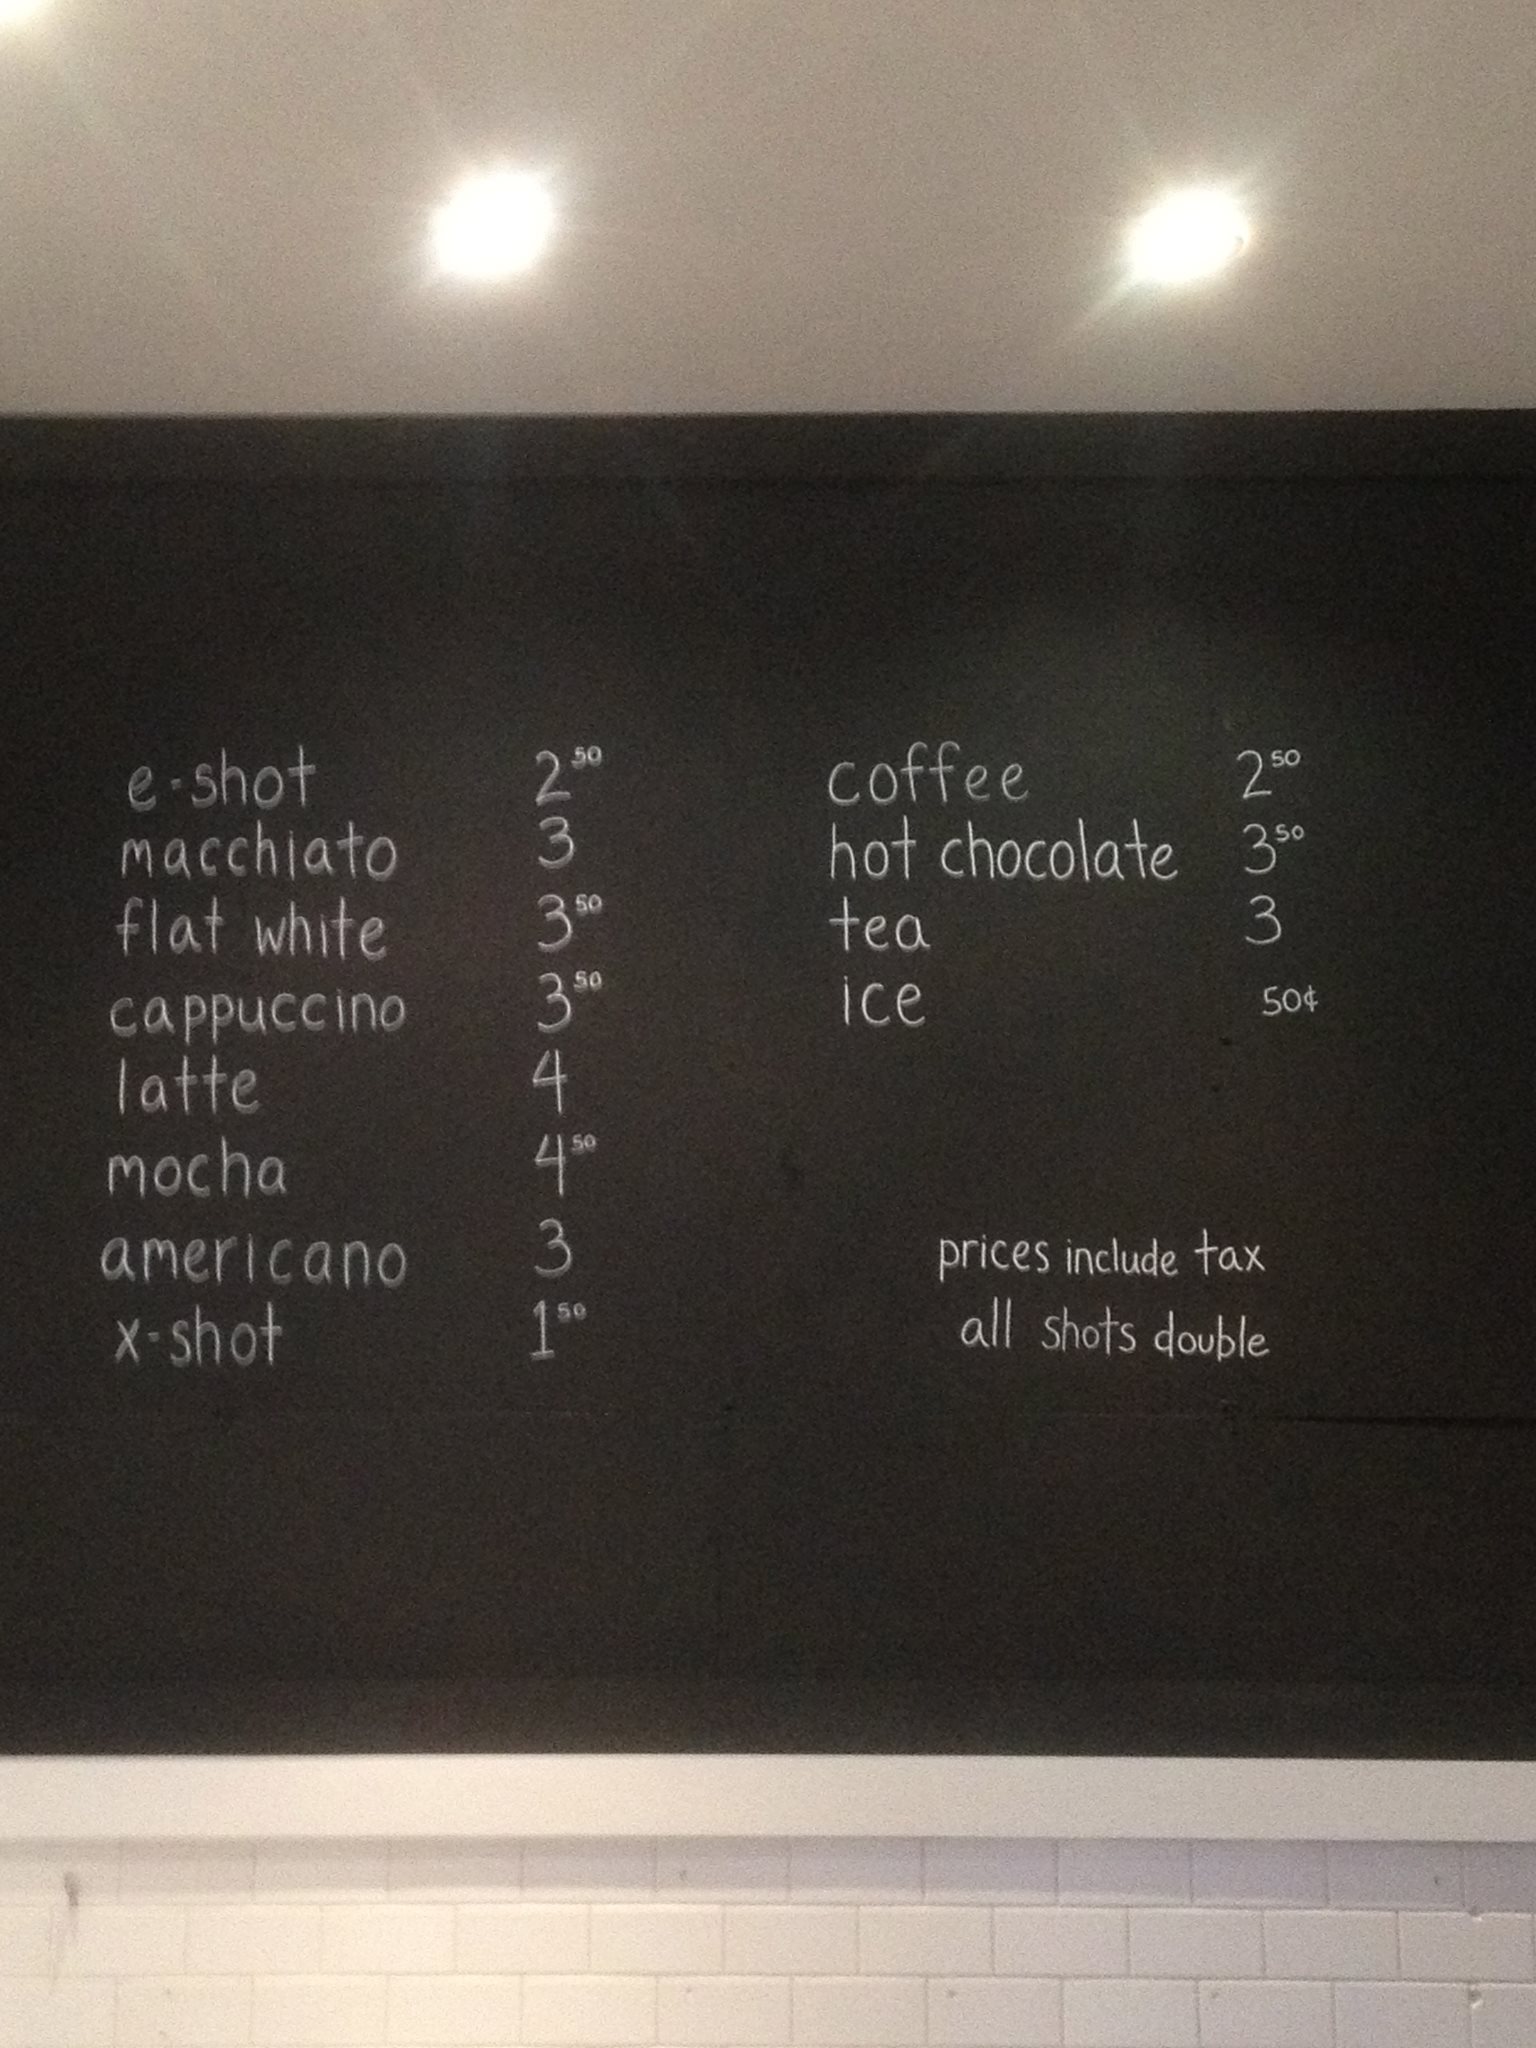 e-shot 2 50
macchiato 3
flat white 3 50
cappuccino 3 50
latte 4
mocha 4 50
americano 3
x-shot 1 50
coffee 2 50
hot chocolate 3 50
tea 3
ice 50¢
prices include tax
all shots double